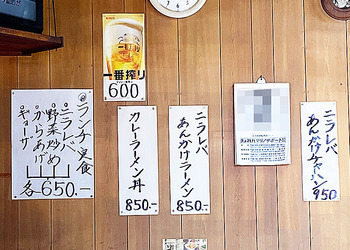 一番搾り
600
ランチ定食
ニラレバ
野菜炒め
からあげ
ギョーザ
各650.-
カレーラーメン丼
850.-
ニラレバ
あんかけラーメン
850.-
ニラレバ
あんかけチャーハン
950